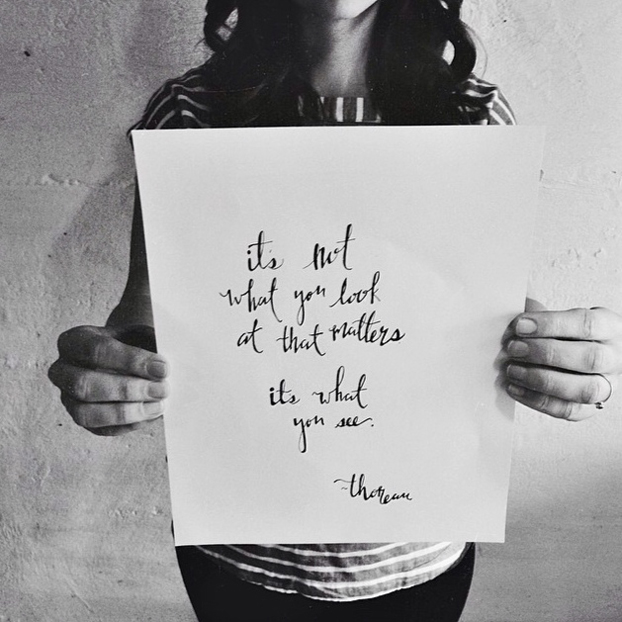 it's not
what you look
at that matters
it's what
you see.
~thoreau